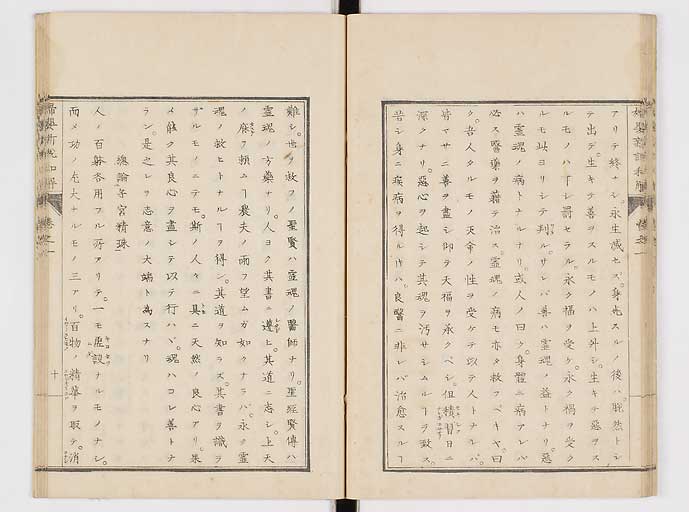 アリテ終ナシ。永生滅セズ。身死スルノ後ハ。脱然トシ
テ出デ。生キテ善ヲスルモノハ上升シ。生キテ惡ヲス
ルモノハ下シ罰セラル。永ク福ヲ受ケ。永ク禍ヲ受ク
レモ此ヨリシテ判ル。サレバ善ハ靈魂ノ益トナリ。惡
ハ靈魂ノ病トナルナリ。或人ノ曰ク。身體ニ病アレバ
必ス醫藥ヲ藉テ治ス。靈魂ノ病モ亦タ救フベキヤ。曰
ク。吾人タルモノ天命ノ性ヲ受ケテ以テ人トナレバ。
皆マサニ善ヲ盡シ卽ヲ天福ヲ承クベシ。但積習日ニ
深クナリ。惡心ヲ起シテ其魂ヲ汚サシムルヿヲ致ス。
若シ身ニ疾病ヲ得ルトキハ。良醫ニ非レバ治愈スルヿ
難シ。世ヲ救フノ聖賢ハ靈魂ノ醫師ナリ。聖經賢傳ハ
靈魂ノ方藥ナリ。人ヨク其書ニ遵ヒ。其道ニ志シ。上天
ノ庥フ賴ムヿ農夫ノ雨フ望ムガ如クナラバ。永ク靈
魂ノ救ヒトナルヿヲ得ン。其道ヲ知ラズ。其書ヲ識ラ
ザルモノニテモ。斯ノ人々ニ具ニ天然ノ良心アリ。果
メ能ク其良心ヲ盡シテ以テ行ハヾ。魂ハコレ善トナ
ラン。是之レヲ志意ノ大端ト為スナリ
總論子宮精珠
人ノ百般吝用フル所アリテ。一モ虚設ナルモノナシ。
而メ功ノ尤大ナルモノ三アリ。百物ノ精華ヲ取テ消
十